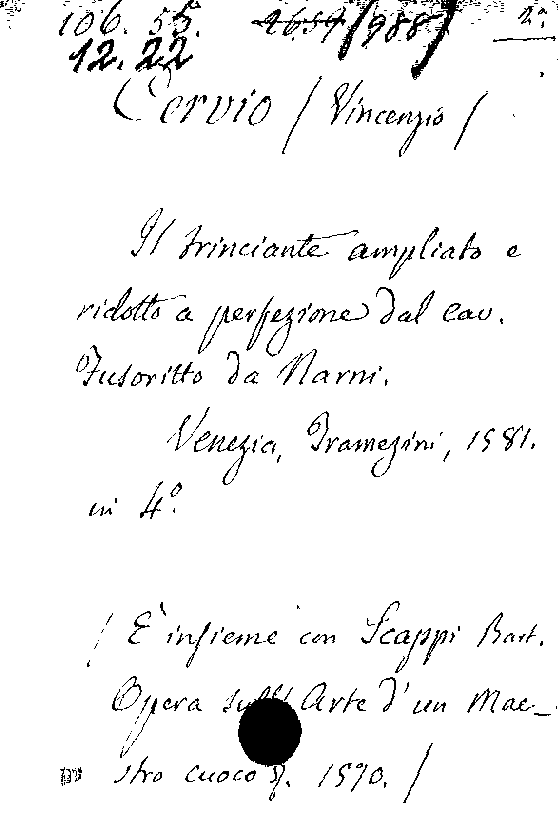 106. 55. 2659 /988/ 2ª
12. 22
Cervio / Vincenzio /
Il trinciante ampliato e
ridotto a perfezione dal cav.
Fusoritto da Narni.
Venezia, Tramezini, 1581.
in 4°.
/ È insieme con Scappi Bart.
Opera sull' Arte d'un Mae_
stro cuoco 1570. /